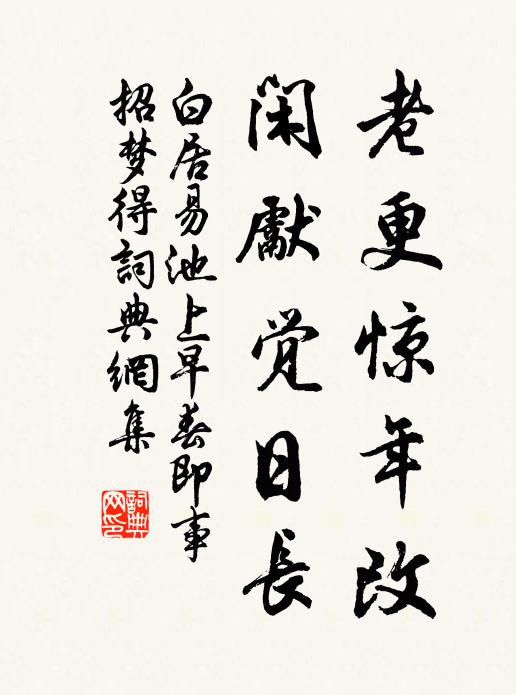 老更惊年改
闲獻觉日長
白居易池上早春即事
招梦得詞典網集
詞典
网印